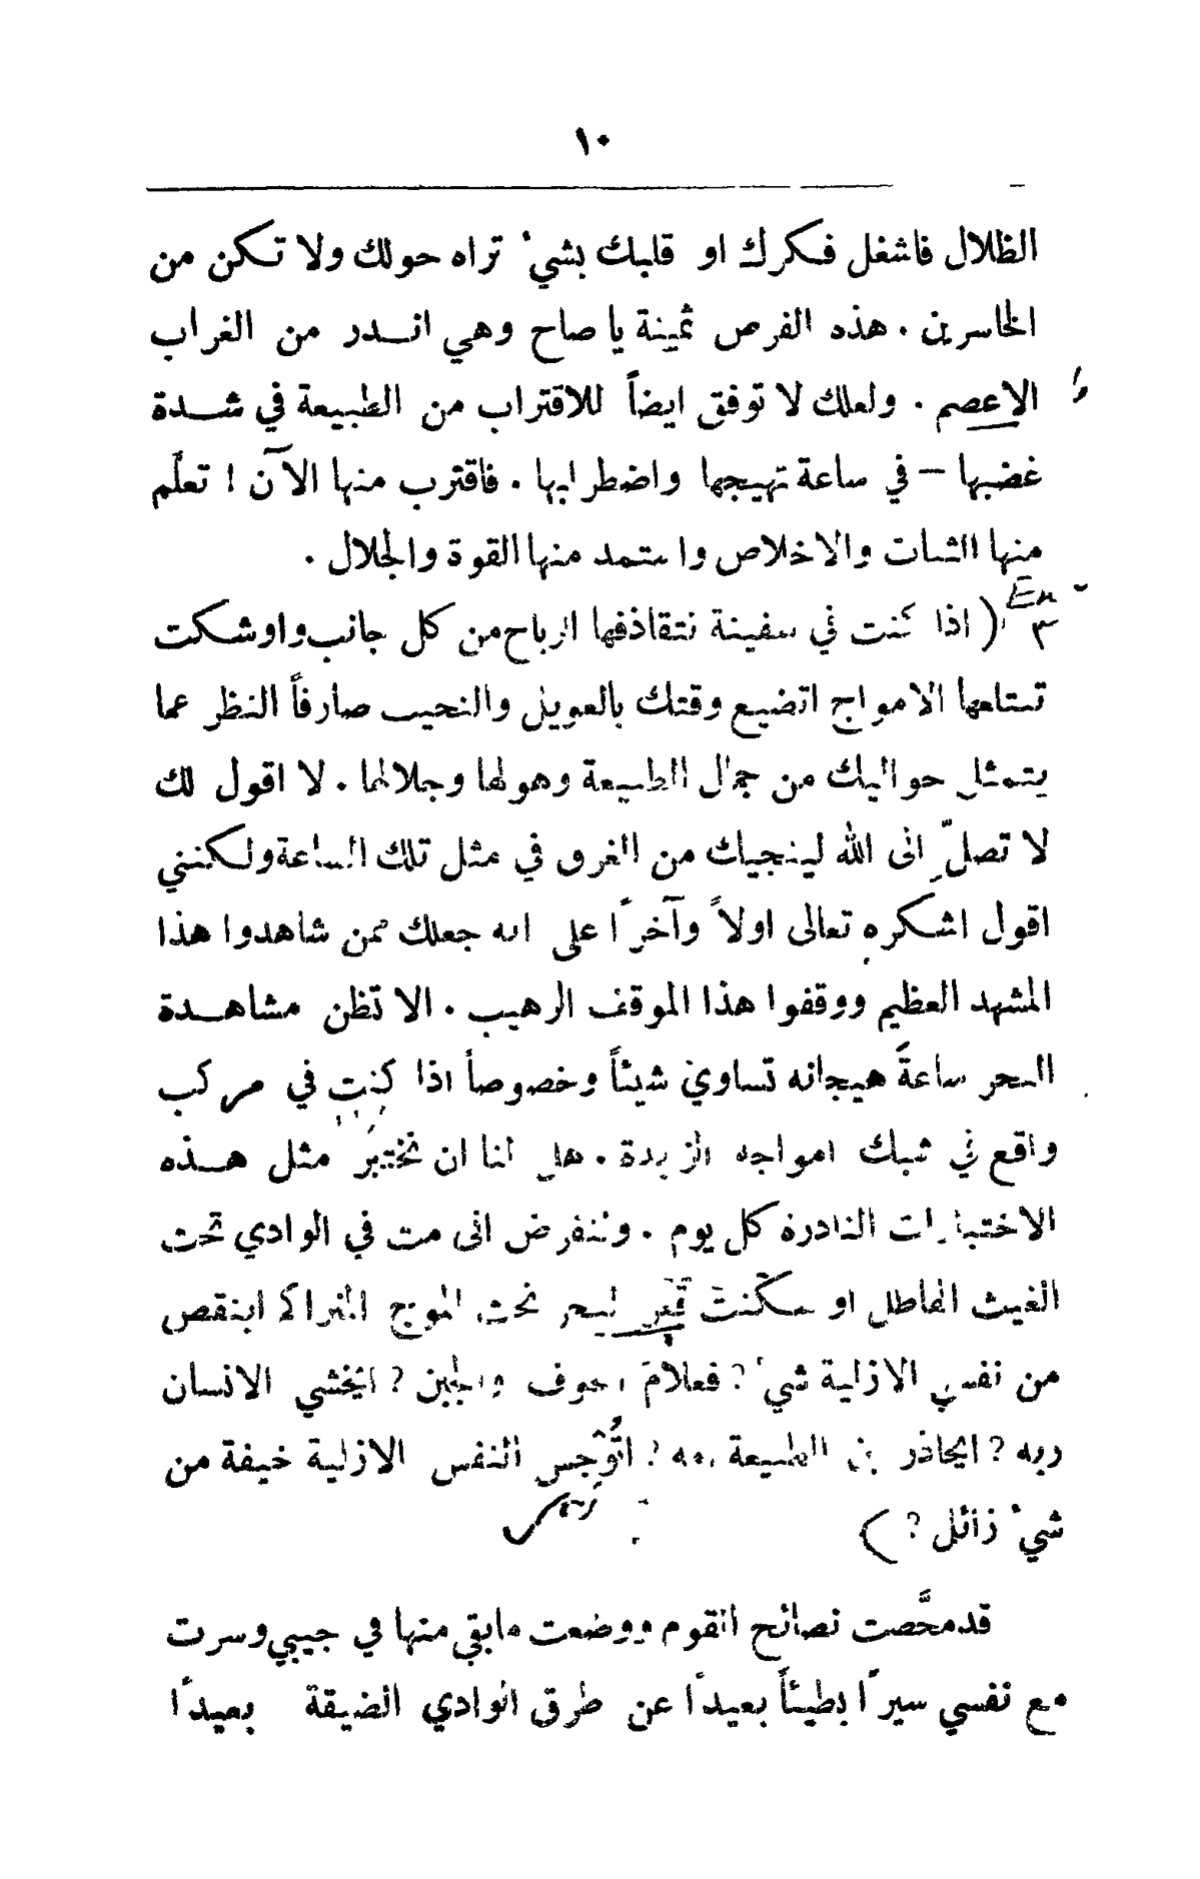 ١٠
الظلال فاشغل فكرك او قلبك بشيء تراه حولك ولا تكن من
الخاسرين . هذه الفرص ثمينة يا صاح وهي انـدر من الغراب
الاعصم . ولعلك لا توفق ايضاً للاقتراب من الطبيعة في شـدة
غضبها – في ساعة تهيجها واضطرابها . فاقترب منها الآن ! تعلّم
منها الثبات والاخلاص واستمد منها القوة والجلال .
( اذا كنت في سفينة نتقاذفها الرياح من كل جانب واوشكت
تبتلعها الامواج اتضيع وقتك بالعويل والنحيب صارفاً النظر عما
يتمثل حواليك من جمال الطبيعة وهولها وجلالها . لا اقول لك
لا تصلِّ الى الله لينجيك من الغرق في مثل تلك الساعة ولكنني
اقول اشكره تعالى اولاً وآخرًا على انه جعلك ممن شاهدوا هذا
المشهد العظيم ووقفوا هذا الموقف الرهيب . الا تظن مشاهـدة
البحر ساعةَ هيجانه تساوي شيئاً وخصوصاً اذا كنت في مركب
واقع في شبك امواجه المزبدة . هل لنا ان نختبر مثل هـذه
الاختبارات النادرة كل يوم . ولنفرض انى مت في الوادي تحت
الغيث الهاطل او سكنت قعر البحر تحت الموج المتراكم اينقص
من نفسي الازلية شيء ? فعلامَ الخوف والجبن ? ايخشي الانسان
ربه ? ايحاذر ابن الطبيعة امه ? اتُوجس النفس الازلية خيفة من
شيء زائل ? )
قد محَّصت نصائح القوم ووضعت مابقي منها في جيبي وسرت
مع نفسي سيرًا بطيئاً بعيدًا عن طرق الوادي الضيقة بعيدًا